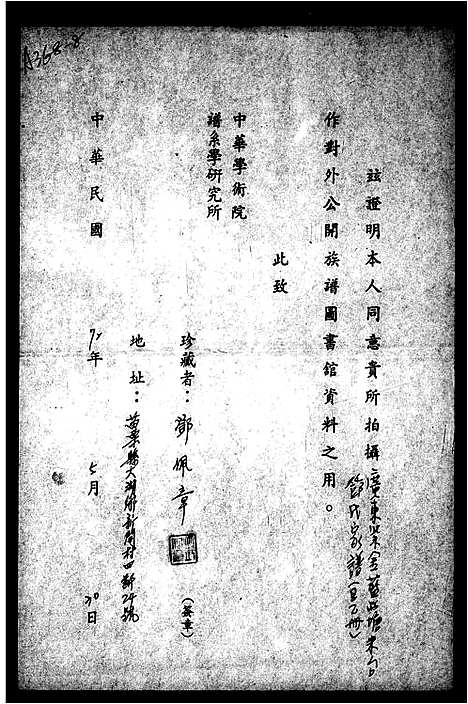 A368-8
茲證明本人同意貴所拍攝廣東紫金藍塘
鄧氏家譜(呈乙冊)
作對外公開族譜圖書館資料之用。
此致
中華學術院
譜系學研究所
珍藏者：鄧佩章（簽章）
地址：苗栗縣大湖鄉新開村四鄰24號
中華民國 年 5月 30日